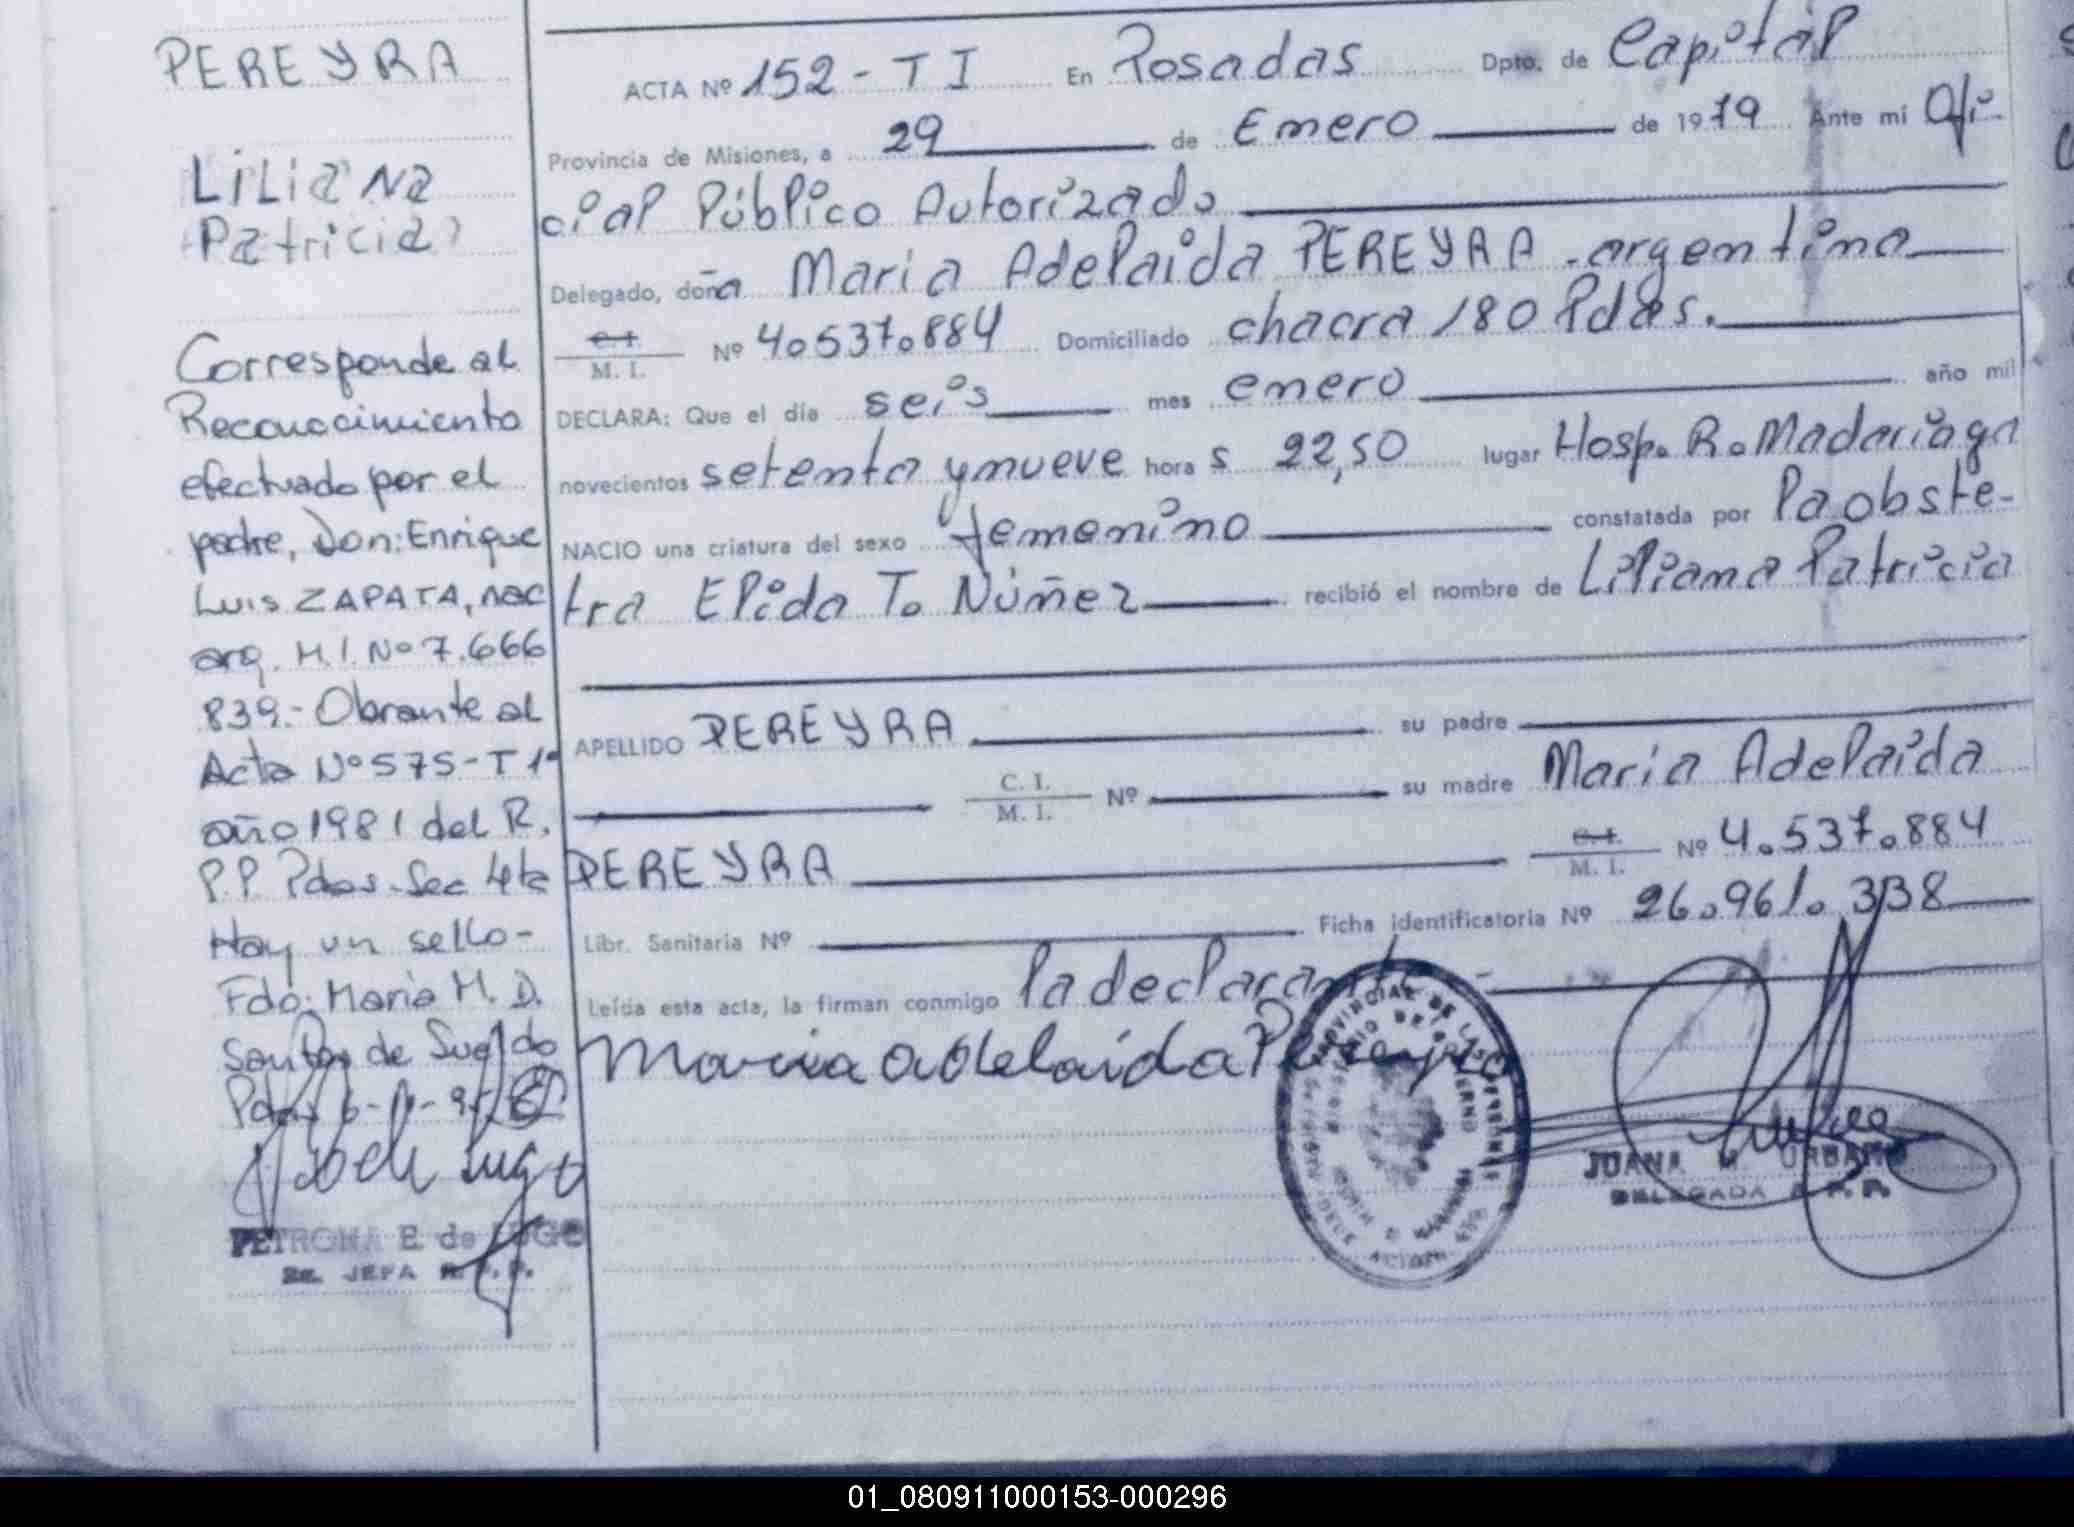 PEREYRA
LiLiaNa
Patricia
Corresponde al
Reconocimiento
efectuado por el
padre, Don: Enrique
Luis ZAPATA, nac
arg. M.I. Nº 7.666
839.- Obrante al
Acta Nº 575-T 1º
año 1981 del R.
P.P. Pdas. Sec 4ta
Hay un sello-
Fdo: Maria M. D.
de Sueldo
Pdas
PETRONA E. de LUGO
JEFA R.P.P.
ACTA Nº 152-TI En Posadas Dpto. de Capital
Provincia de Misiones, a 29 de Enero de 1979 Ante mí Ofi-
cial Público Autorizado
Delegado, doña Maria Adelaida PEREYRA - argentina
C.I. M. I. Nº 4.537.884 Domiciliado chacra 180 Pdas.
DECLARA: Que el día seis mes enero año mil
novecientos setenta y nueve hora s 22,50 lugar Hosp. R. Madariaga
NACIO una criatura del sexo femenino constatada por la obste-
tra Elida T. Núñez recibió el nombre de Liliana Patricia
APELLIDO PEREYRA su padre
C. I. M. I. Nº su madre Maria Adelaida
PEREYRA C.I. M. I. Nº 4.537.884
Libr. Sanitaria Nº Ficha identificatoria Nº 26.961.338
Leída esta acta, la firman conmigo la declarante -
Maria Adelaida Pereyra
PROVINCIAL DE LAS PERSONAS
MINISTERIO DE GOBIERNO
JUANA M. URBANO
DELEGADA R.P.P.
01_080911000153-000296